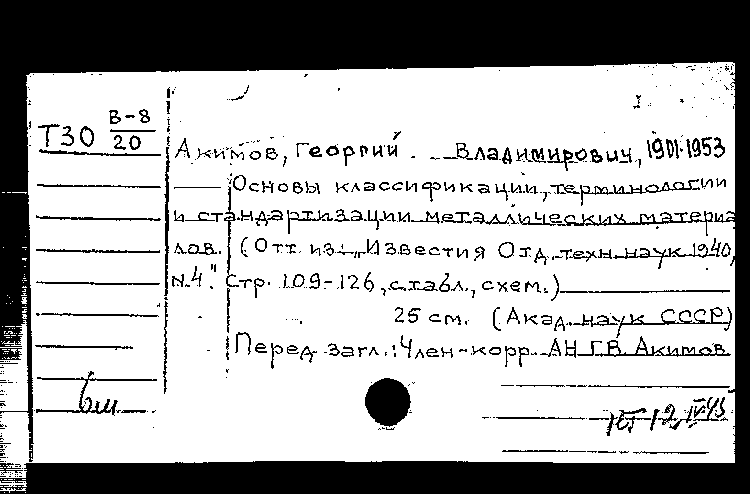 I
Т30 В-8
20
Акимов, Георгий Владимирович, 1901-1953
Основы классификации, терминологии
и стандартизации металлических материа
лов. (Отт. из: „Известия Отд. техн. наук 1940,
N.4." Стр. 109-126, с табл., схем.)
25 см. (Акад. наук СССР)
Перед загл.: Член-корр. АН Г.В. Акимов